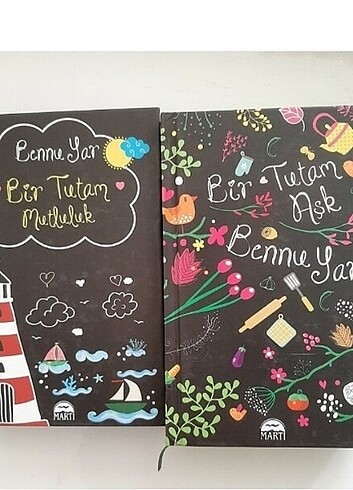 Bennu Yar
Bir Tutam
Mutluluk
MARTI
Bir Tutam
Aşk
Bennu Yar
MARTI